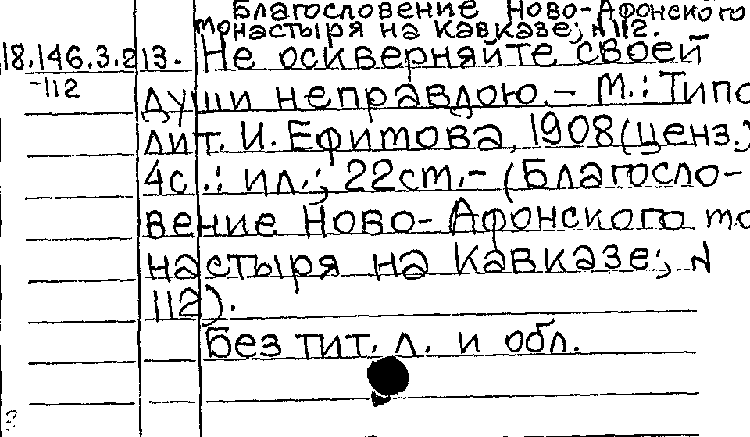 Благословение Ново-Афонского
монастыря на Кавказе; N 112.
18.146.3.213. Не оскверняйте своей
-112
души неправдою.- М.: Типо
лит. И. Ефимова, 1908(ценз.)
4с.: ил.; 22см.- (Благосло-
вение Ново-Афонского мо
настыря на Кавказе; N
112).
Без тит. л. и обл.